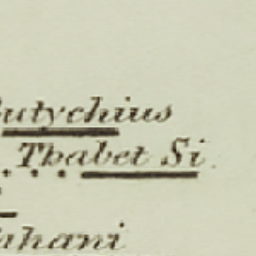 Eutychius
Thabet Si
hani